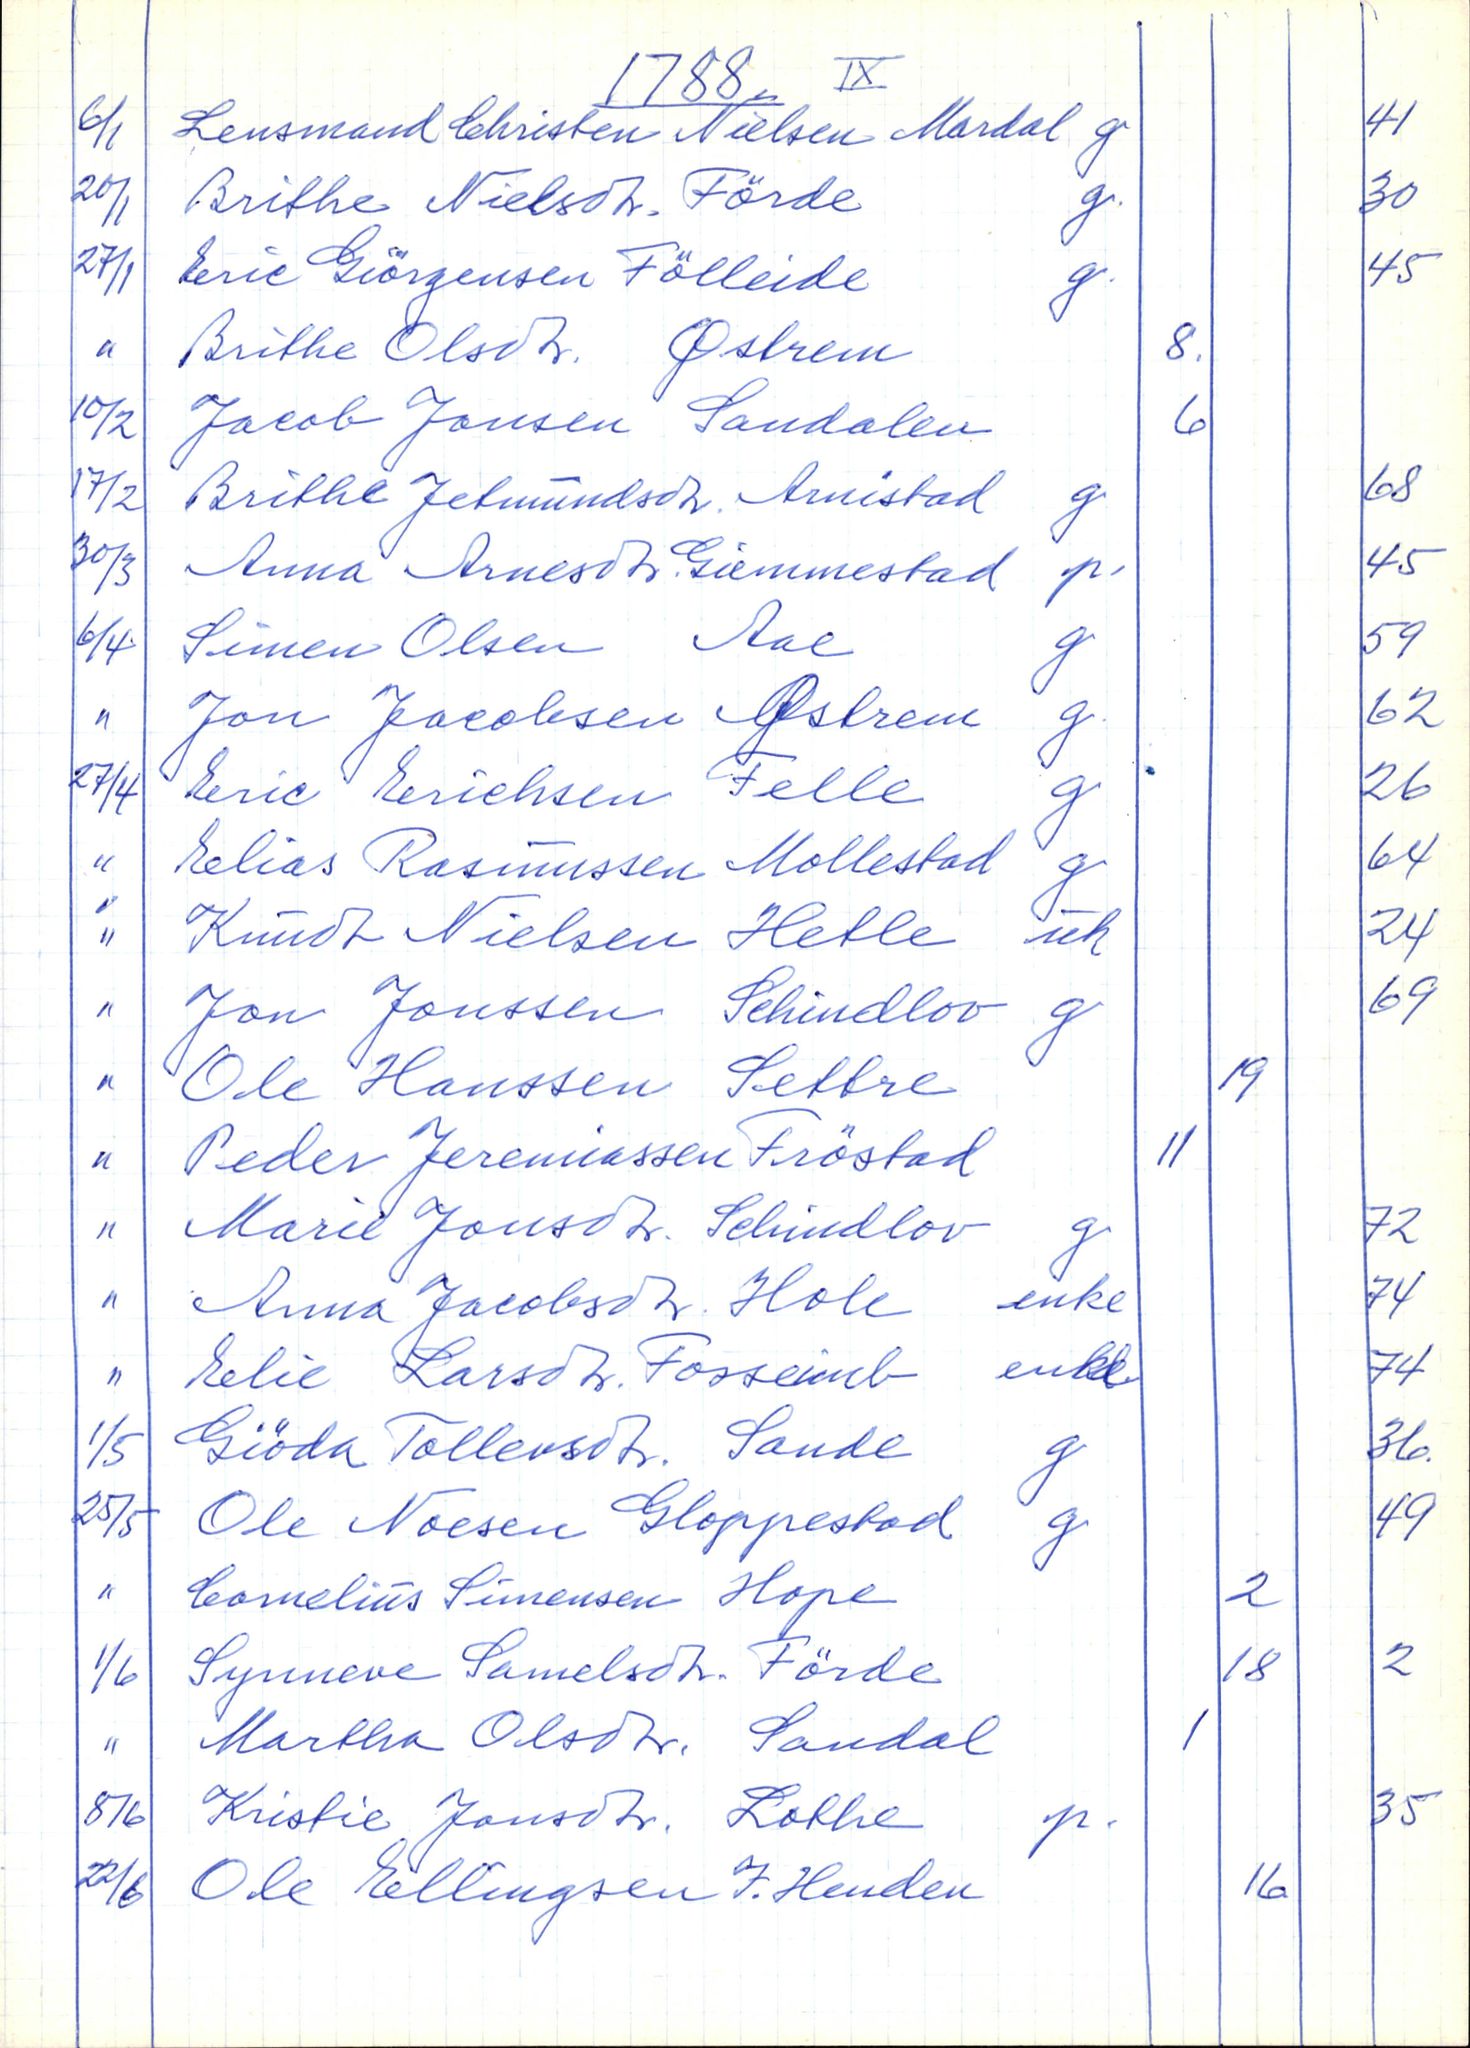 1788. IX
6/1 Lensmand Christen Nielsen Mardal g 41
20/1 Brithe Nielsdtr. Förde g. 30
27/1 Eric Giörgensen Fölleide g. 45
" Brithe Olsdtr. Østrem 8.
10/2 Jacob Jonsen Sandalen 6
17/2 Brithe Jetmundsdtr. Arnistad g 68
30/3 Anna Arnesdtr. Giemmestad p. 45
6/4 Simen Olsen Aae g 59
" Jon Jacobsen Østrem g. 62
27/4 Eric Erichsen Felle g 26
" Elias Rasmussen Mollestad g 64
" Knudt Nielsen Hetle uk 24
" Jon Jonssen Schindlov g 69
" Ole Hanssen Settre 19
" Peder Jeremiassen Fröstad 11
" Marie Jonsdtr. Schindlov g 72
" Anna Jacobsdtr. Hole enke 74
" Elie Larsdtr. Fosseimb enke 74
1/5 Giöda Tollevsdtr. Sande g 36.
25/5 Ole Noesen Gloppestad g 49
" Cornelius Simensen Hope 2
1/6 Synneve Samelsdtr. Förde 18 2
" Martha Olsdtr. Sandal 1
8/6 Kristie Jonsdtr. Lothe p. 35
22/6 Ole Ellingsen Y. Henden 16